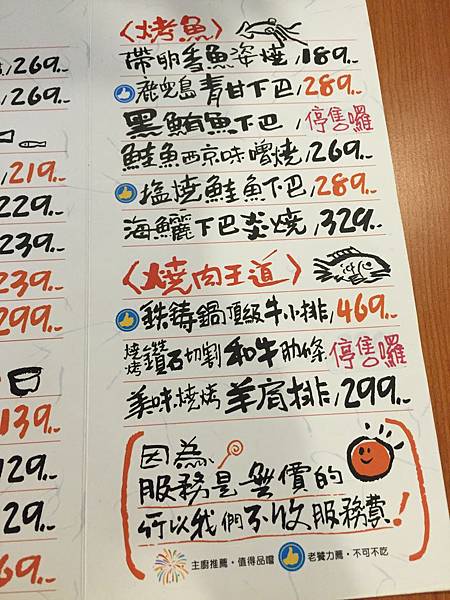 269.~
269.~
219.~
229.~
239.~
239.~
299.~
139.~
129.~
129.~
69.~
〈烤魚〉
帶卵香魚姿燒/189.~
鹿兒島青甘下巴/289.~
黑鮪魚下巴/停售囉
鮭魚西京味噌燒/269.~
塩燒鮭魚下巴/289.~
海鱺下巴炎燒/329.~
〈燒肉王道〉
鉄鑄鍋頂級牛小排/469.~
燒烤鑽石切割和牛肋條 停售囉
美味燒烤羊肩排/299.~
因為
服務是無價的
所以我們不收服務費!
主廚推薦‧值得品嚐 老饕力薦‧不可不吃